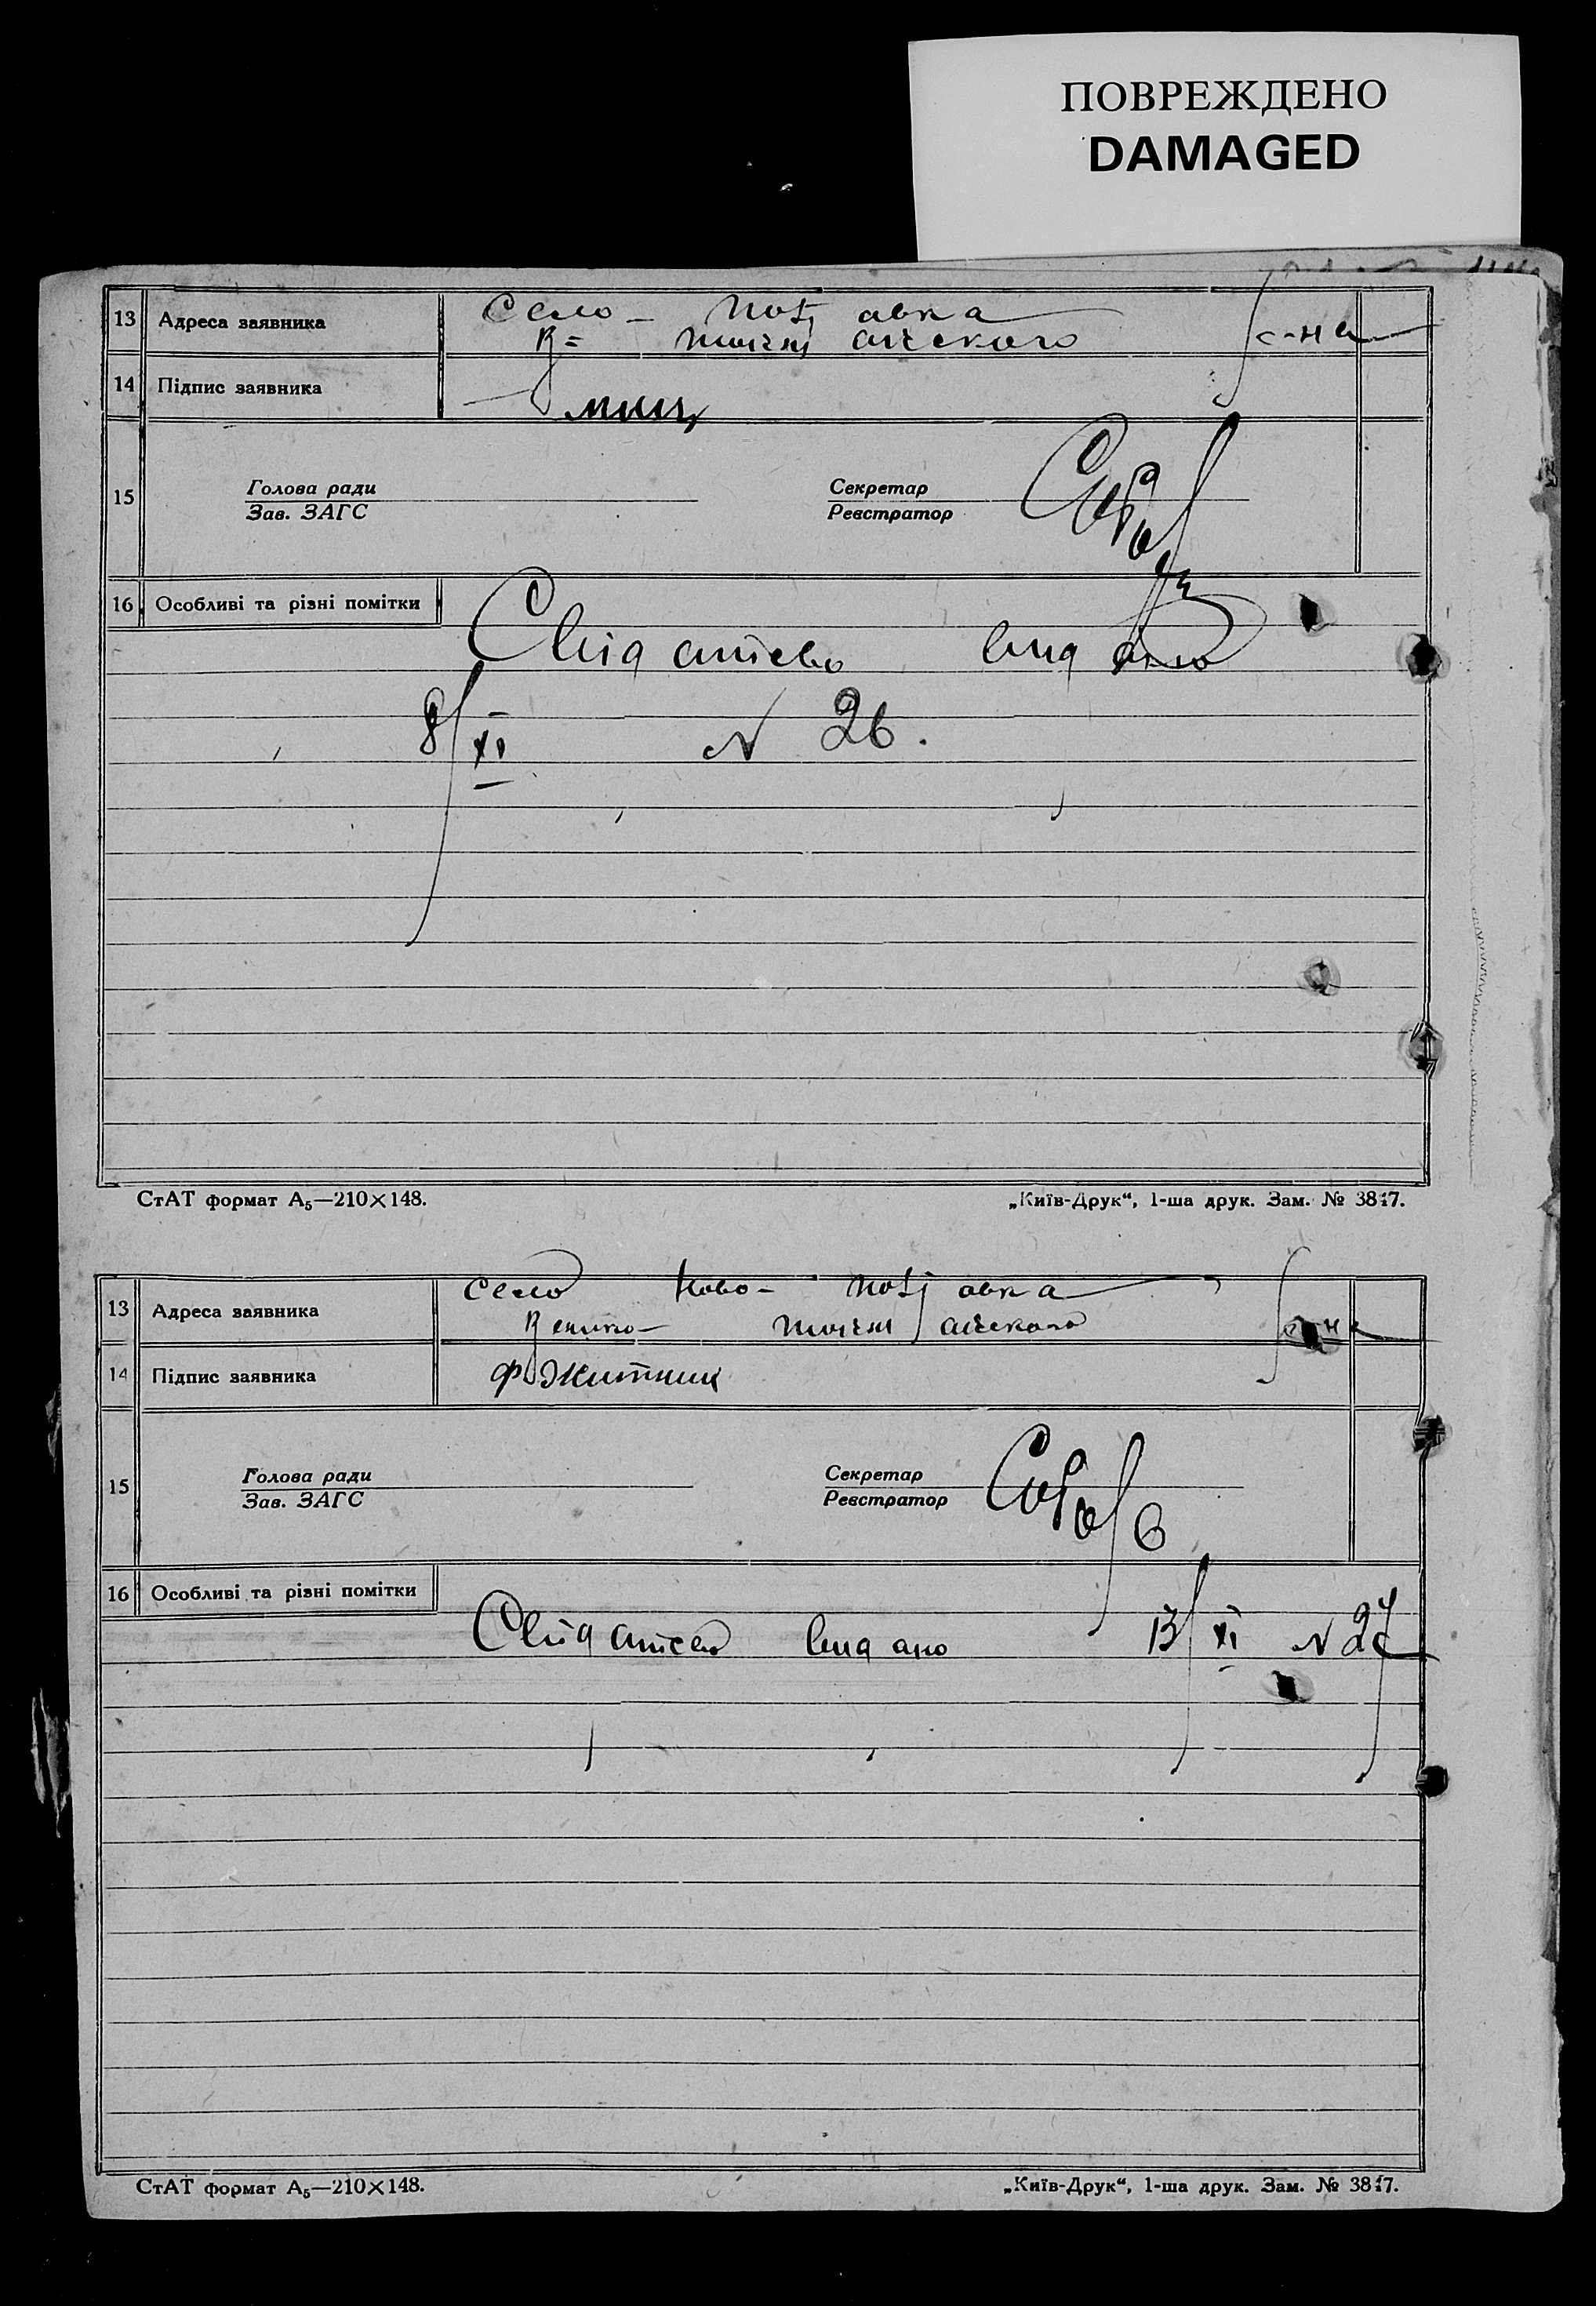 ПОВРЕЖДЕНО
DAMAGED
13 Адреса заявника Село - с-на
14 Підпис заявника
15 Голова ради Секретар
Зав. ЗАГС Реєстратор
16 Особливі та різні помітки
Свідоцтво видано
8/XI N 26.
СтАТ формат А5—210×148. „Київ-Друк“, 1-ша друк. Зам. № 3847.
13 Адреса заявника село Ново-
14 Підпис заявника Ф Житник
15 Голова ради Секретар
Зав. ЗАГС Реєстратор
16 Особливі та різні помітки
Свідоцтво видано 13/XI N 27
СтАТ формат А5—210×148. „Київ-Друк“, 1-ша друк. Зам. № 3847.